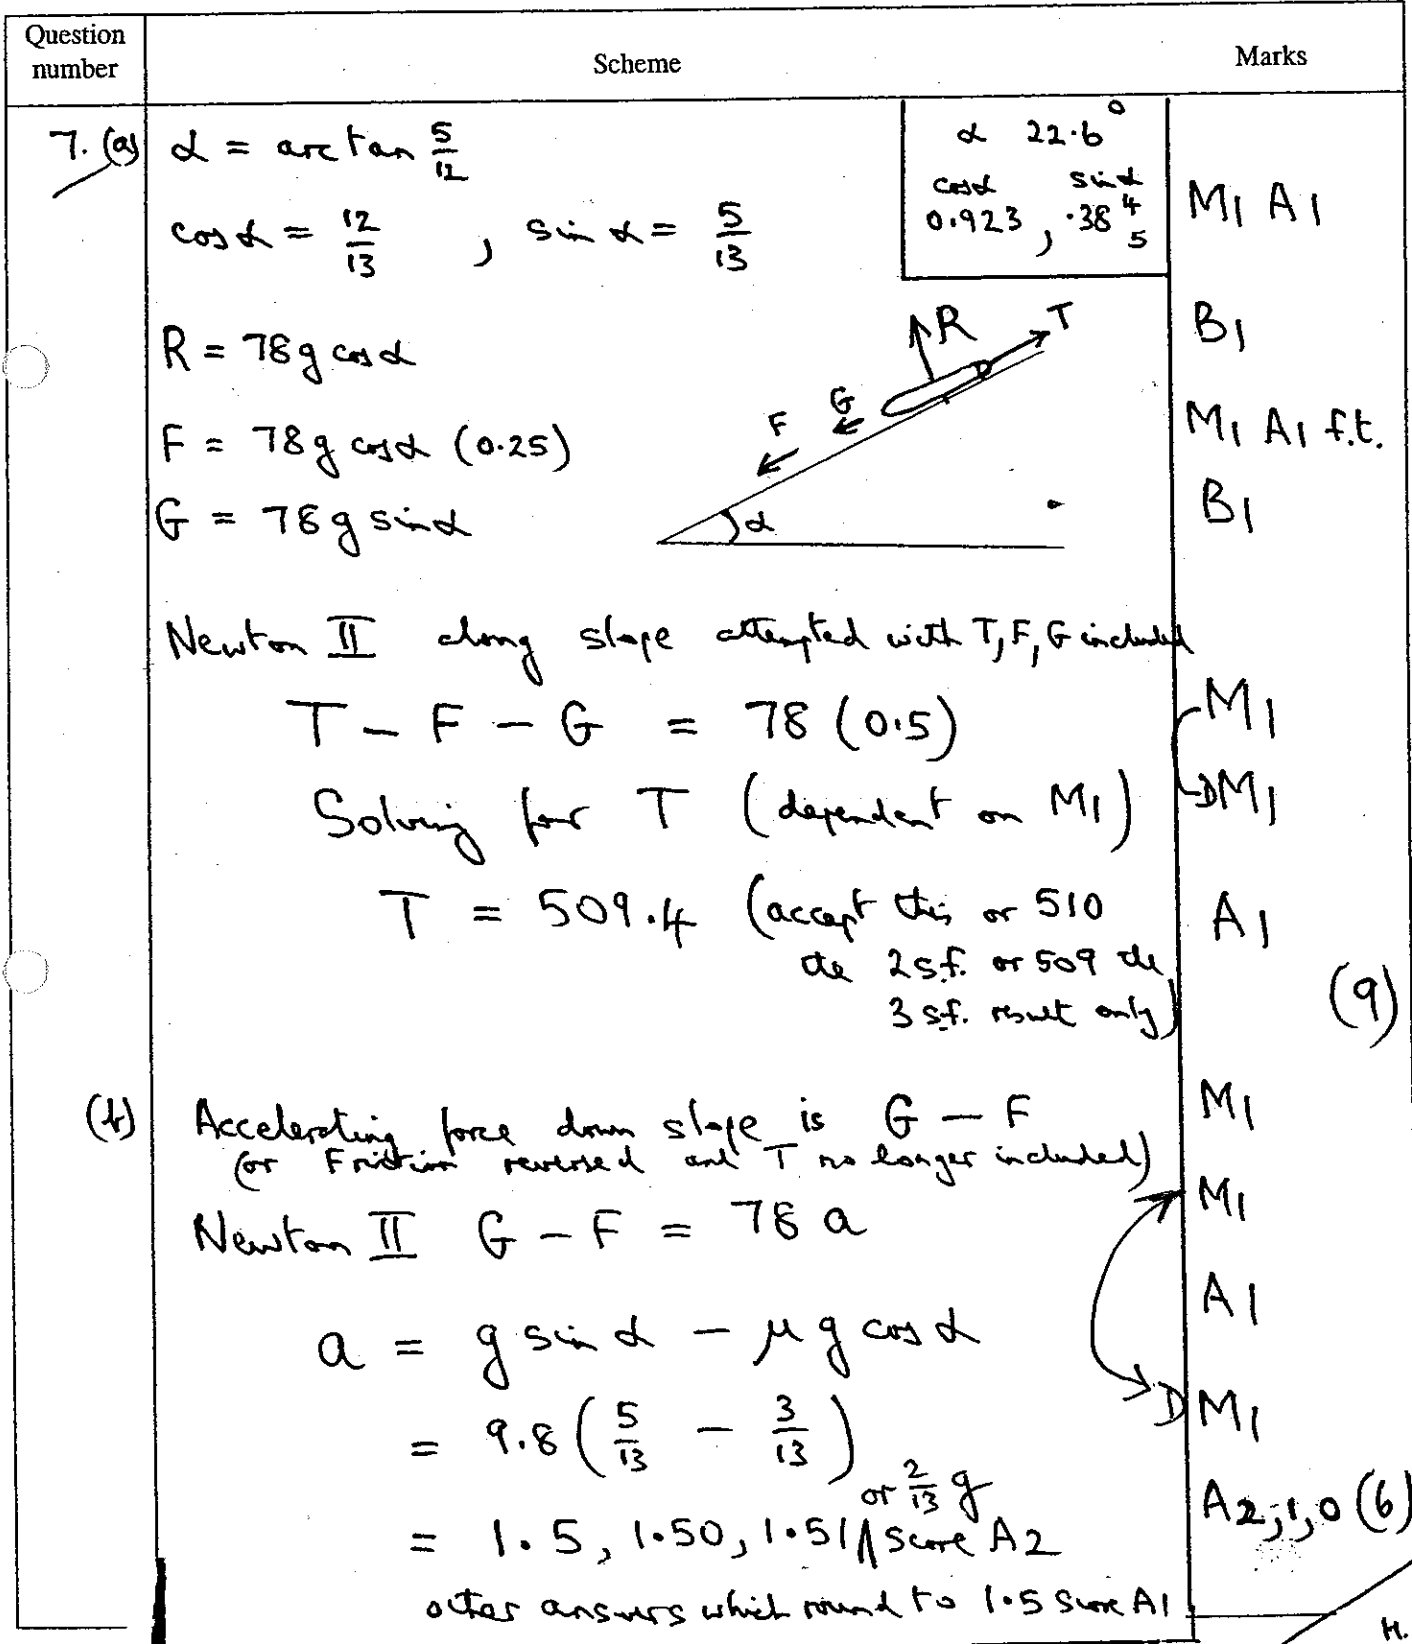 Question number
Scheme
Marks
7. (a) α = arctan 5/12
α 22.6°
cosα sinα
0.923, .38 4/5
M1 A1
cosα = 12/13 , sinα = 5/13
R = 78g cosα
B1
R
T
G
F
α
F = 78g cosα (0.25)
M1 A1 f.t.
G = 78g sinα
B1
Newton II along slope attempted with T, F, G included
T − F − G = 78 (0.5)
M1
Solving for T (dependent on M1)
DM1
T = 509.4 (accept this or 510
A1
the 2 s.f. or 509 the
3 s.f. result only)
(9)
(b) Accelerating force down slope is G − F
M1
(or Friction reversed and T no longer included)
Newton II G − F = 78 a
M1
A1
a = g sinα − μ g cosα
= 9.8 (5/13 − 3/13)
DM1
or 2/13 g
= 1.5, 1.50, 1.51 score A2
A2,1,0 (6)
other answers which round to 1.5 score A1
H.